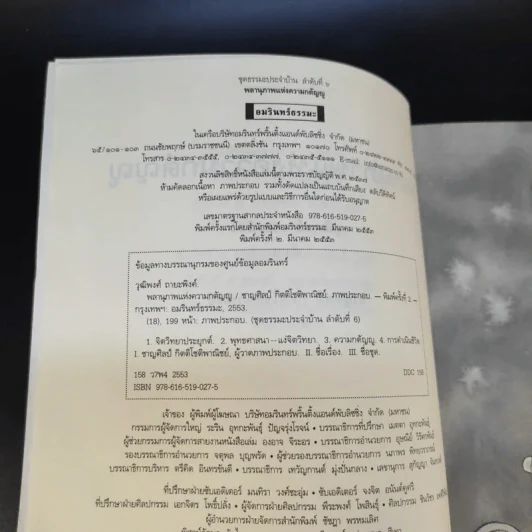 ชุดธรรมะประจำบ้าน ลำดับที่ ๖
พลานุภาพแห่งความกตัญญู
อมรินทร์ธรรมะ
ในเครือบริษัทอมรินทร์พริ้นติ้งแอนด์พับลิชชิ่ง จำกัด (มหาชน)
๖๕/๑๐๑-๑๐๓ ถนนชัยพฤกษ์ (บรมราชชนนี) เขตตลิ่งชัน กรุงเทพฯ ๑๐๑๗๐ โทรศัพท์
โทรสาร
สงวนลิขสิทธิ์หนังสือเล่มนี้ตามพระราชบัญญัติ พ.ศ. ๒๕๓๗
ห้ามคัดลอกเนื้อหา ภาพประกอบ รวมทั้งดัดแปลงเป็นแถบบันทึกเสียง
หรือเผยแพร่ด้วยรูปแบบและวิธีการอื่นใดก่อนได้รับอนุญาต
เลขมาตรฐานสากลประจำหนังสือ 978-616-519-027-5
พิมพ์ครั้งแรกโดยสำนักพิมพ์อมรินทร์ธรรมะ มีนาคม ๒๕๕๓
พิมพ์ครั้งที่ ๒ มีนาคม ๒๕๕๓
ข้อมูลทางบรรณานุกรมของศูนย์ข้อมูลอมรินทร์
วุฒิพงศ์ ถายะพิงค์.
พลานุภาพแห่งความกตัญญู / ชาญศิลป์ กิตติโชติพาณิชย์. ภาพประกอบ -- พิมพ์ครั้งที่ 2. --
กรุงเทพฯ: อมรินทร์ธรรมะ, 2553.
(18), 199 หน้า: ภาพประกอบ. (ชุดธรรมะประจำบ้าน ลำดับที่ 6)
1. จิตวิทยาประยุกต์. 2. พุทธศาสนา--แง่จิตวิทยา. 3. ความกตัญญู. 4. การดำเนินชีวิต
I. ชาญศิลป์ กิตติโชติพาณิชย์, ผู้วาดภาพประกอบ. II. ชื่อเรื่อง. III. ชื่อชุด.
158 ว7พ4 2553
DDC 158
ISBN 978-616-519-027-5
เจ้าของ ผู้พิมพ์ผู้โฆษณา บริษัทอมรินทร์พริ้นติ้งแอนด์พับลิชชิ่ง จำกัด (มหาชน)
กรรมการผู้จัดการใหญ่ ระริน อุทกะพันธุ์ ปัญจรุ่งโรจน์ • บรรณาธิการที่ปรึกษา เมตตา อุทกะพันธุ์
ผู้ช่วยกรรมการผู้จัดการสายงานหนังสือเล่ม องอาจ จิระอร • บรรณาธิการอำนวยการ อุษณีย์
รองบรรณาธิการอำนวยการ จตุพล บุญพรัด • ผู้ช่วยรองบรรณาธิการอำนวยการ นภาพร
บรรณาธิการบริหาร ตรีคิด อินทรขันตี • บรรณาธิการ เทวัญกานต์ มุ่งปั่นกลาง • เลขานุการ สุกัญญา
ที่ปรึกษาฝ่ายซับเอดิเตอร์ มนทิรา วงศ์ชะอุ่ม • ซับเอดิเตอร์ จงจิต
ที่ปรึกษาฝ่ายศิลปกรรม เอกจิตร โพธิ์ปลั่ง • ผู้จัดการฝ่ายศิลปกรรม พีระพงศ์ โพสินธุ์ • ศิลปกรรม
ผู้อำนวยการฝ่ายจัดการสำนักพิมพ์ ชัชฎา พรหมเลิศ